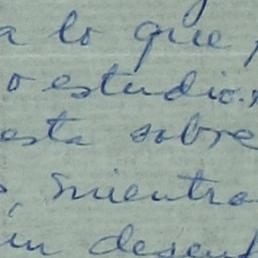 a lo que
o estudio.
esta sobre
, mientra
in desen